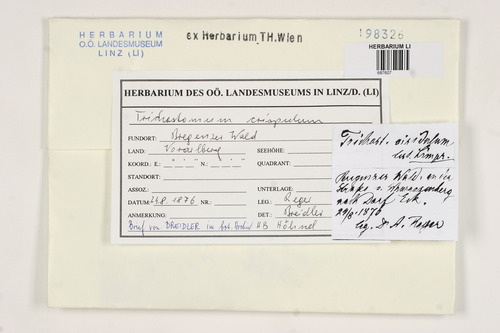 HERBARIUM
O.Ö. LANDESMUSEUM
LINZ (LI)
ex Herbarium TH.Wien
198326
HERBARIUM LI
HERBARIUM DES OÖ. LANDESMUSEUMS IN LINZ/D. (LI)
Trichostomum crispulum
FUNDORT: Bregenzer Wald
LAND: Vorarlberg SEEHÖHE:
KOORD.: E ° ' " N.: ° ' " QUADRANT:
STANDORT:
ASSOZ.: UNTERLAGE:
DATUM: 24.8.1876 NR.: LEG.:
ANMERKUNG: DET.: Breidler
Brief von BREIDLER im HB Höhnel
Trichost.
Limpr.
Bregenzer Wald. an der
Straße v. Schwarzenberg
nach Dorf Eck.
24/8.1876
leg. Dr A.